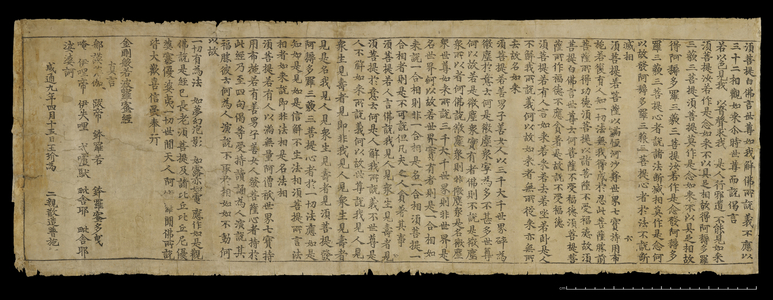 須菩提白佛言世尊如我解佛所說義不應以
三十二相觀如來尒時世尊而說偈言
若以色見我 以音聲求我 是人行邪道 不能見如來
須菩提汝若作是念如來不以具足相故得阿耨多羅
三藐三菩提須菩提莫作是念如來不以具足相故
得阿耨多羅三藐三菩提須菩提若作是念發阿耨多
羅三藐三菩提心者說諸法斷滅相莫作是念何
以故發阿耨多羅三藐三菩提心者於法不說斷
滅相 六
須菩提若菩薩以滿恒河沙等世界七寶持用布
施若復有人知一切法無我得成於忍此菩薩勝前
菩薩所得功德須菩提以諸菩薩不受福德故須
菩提白佛言世尊云何菩薩不受福德須菩提菩
薩所作福德不應貪著是故說不受福德
須菩提若有人言如來若來若去若坐若臥是人
不解我所說義何以故如來者無所從來亦無所
去故名如來
須菩提若善男子善女人以三千大千世界碎為
微塵於意云何是微塵衆寧為多不甚多世尊
何以故若是微塵衆實有者佛則不說是微塵
衆所以者何佛說微塵衆則非微塵衆是名微塵
衆世尊如來所說三千大千世界則非世界是
名世界何以故若世界實有者則是一合相如
來說一合相則非一合相是名一合相須菩提一
合相者則是不可說但凡夫之人貪著其事
須菩提若人言佛說我見人見衆生見壽者見
須菩提於意云何是人解我所說義不世尊是
人不解如來所說義何以故世尊說我見人見
衆生見壽者見即非我見人見衆生見壽者
見是名我見人見衆生見壽者見須菩提發
阿耨多羅三藐三菩提心者於一切法應如是
知如是見如是信解不生法相須菩提所言法
相者如來說即非法相是名法相
須菩提若有人以滿無量阿僧祇世界七寶持
用布施若有善男子善女人發菩薩心者持於
此經乃至四句偈等受持讀誦為人演說其
福勝彼云何為人演說不取於相如如不動何
以故
一切有為法 如夢幻泡影 如露亦如電 應作如是觀
佛說是經已長老須菩提及諸比丘比丘尼優
婆塞優婆夷一切世間天人阿 聞佛所說
皆大歡喜信受奉行
金剛般若波羅蜜經
真言
那謨婆伽 跋帝 鉢羅若 鉢羅蜜多曳
唵 伊 帝 伊失哩 馱 毗舍耶 毗舍耶
娑婆訶
咸通九年四月十五日王玠為 二親敬造普施
cm